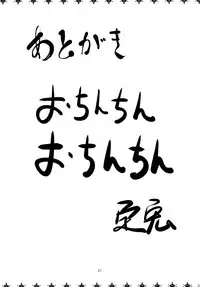 あとがき
おちんちん
おちんちん